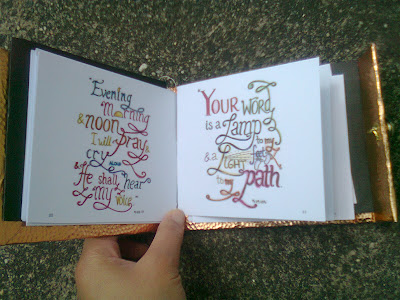 "Evening
Morning
& noon
I will pray &
cry ALOUD
& He shall hear
my voice."
"YOUR WORD
is a Lamp to
my feet
& a LIGHT
to my
path